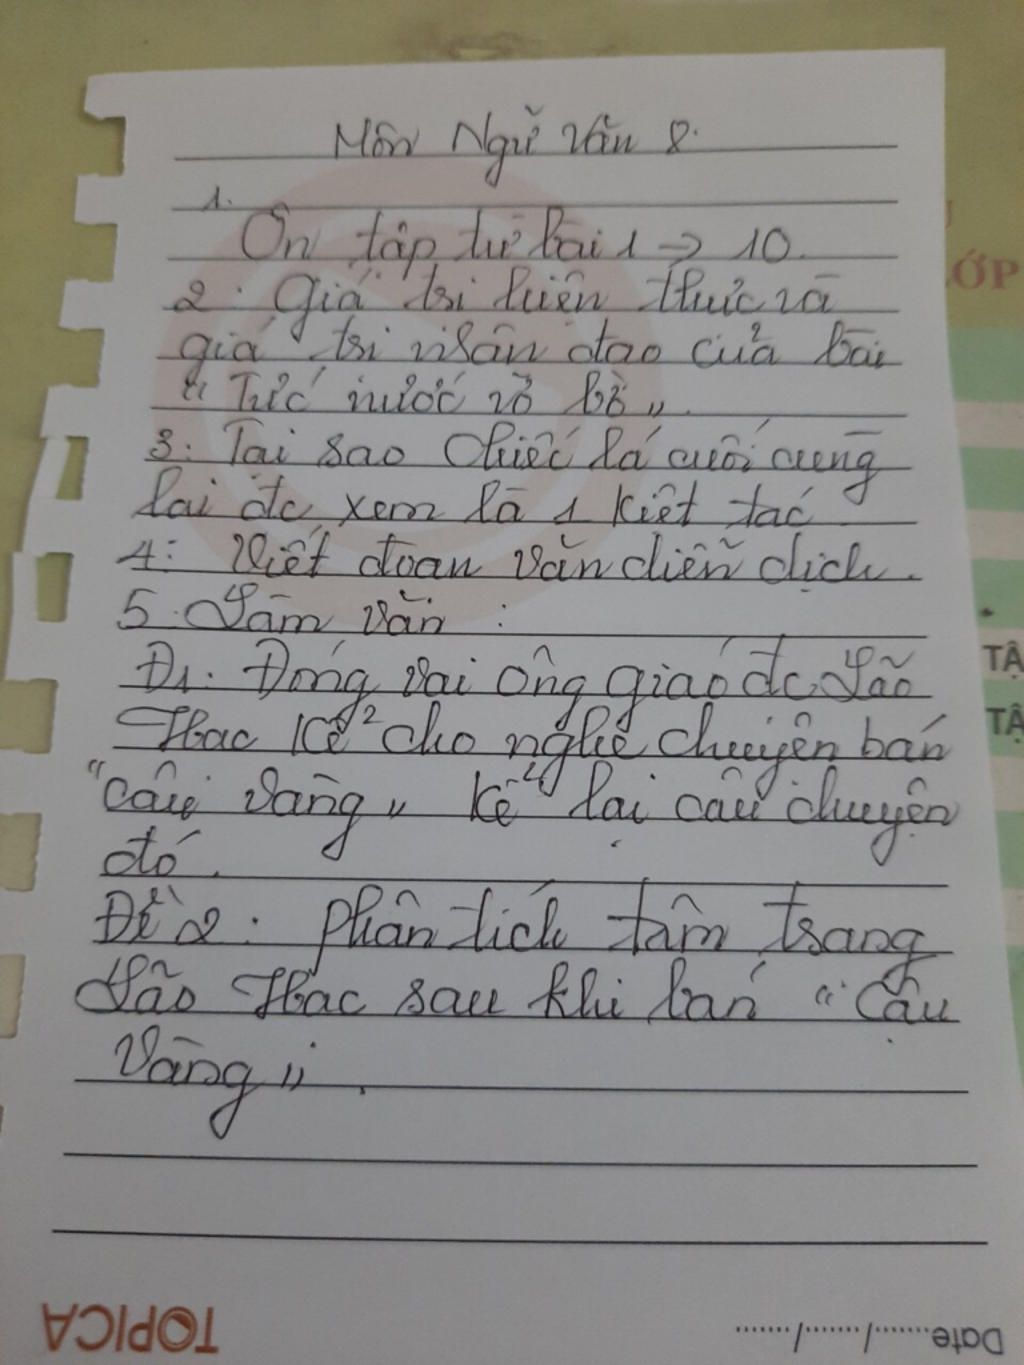 Môn Ngữ Văn 8.
1.
Ôn tập từ bài 1 → 10.
2. Giá trị hiện thực và
giá trị nhân đạo của bài
"Tức nước vỡ bờ".
3. Tại sao Chiếc lá cuối cùng
lại đc xem là 1 kiệt tác
4: Viết đoạn văn diễn dịch.
5. Làm văn :
Đ1. Đóng vai ông giáo đc Lão
Hạc kể cho nghe chuyện bán
"cậu vàng" kể lại câu chuyện
đó.
Đề 2: Phân tích tâm trạng
Lão Hạc sau khi bán "Cậu
Vàng".
ỚP
TẬ
TẬ
TOPICA
Date......./......./.......